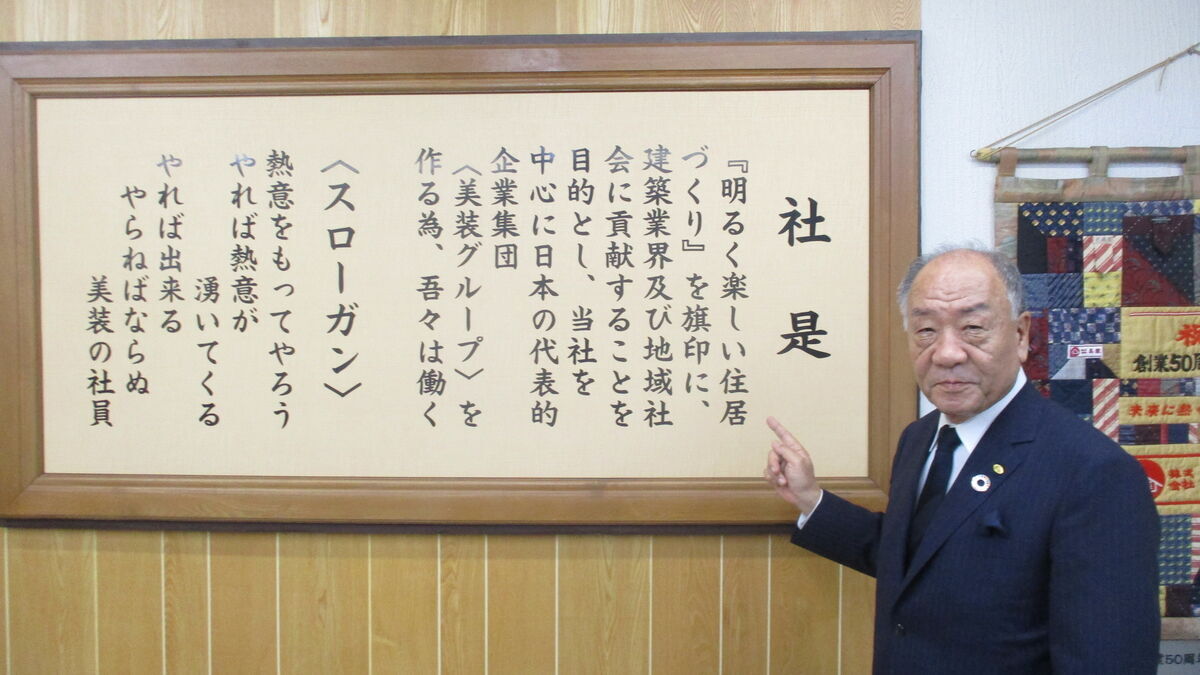 社是
『明るく楽しい住居
づくり』を旗印に、
建築業界及び地域社
会に貢献することを
目的とし、当社を
中心に日本の代表的
企業集団
〈美装グループ〉を
作る為、吾々は働く
〈スローガン〉
熱意をもってやろう
やれば熱意が
湧いてくる
やれば出来る
やらねばならぬ
美装の社員
創業50周
株式
会社
業50周年